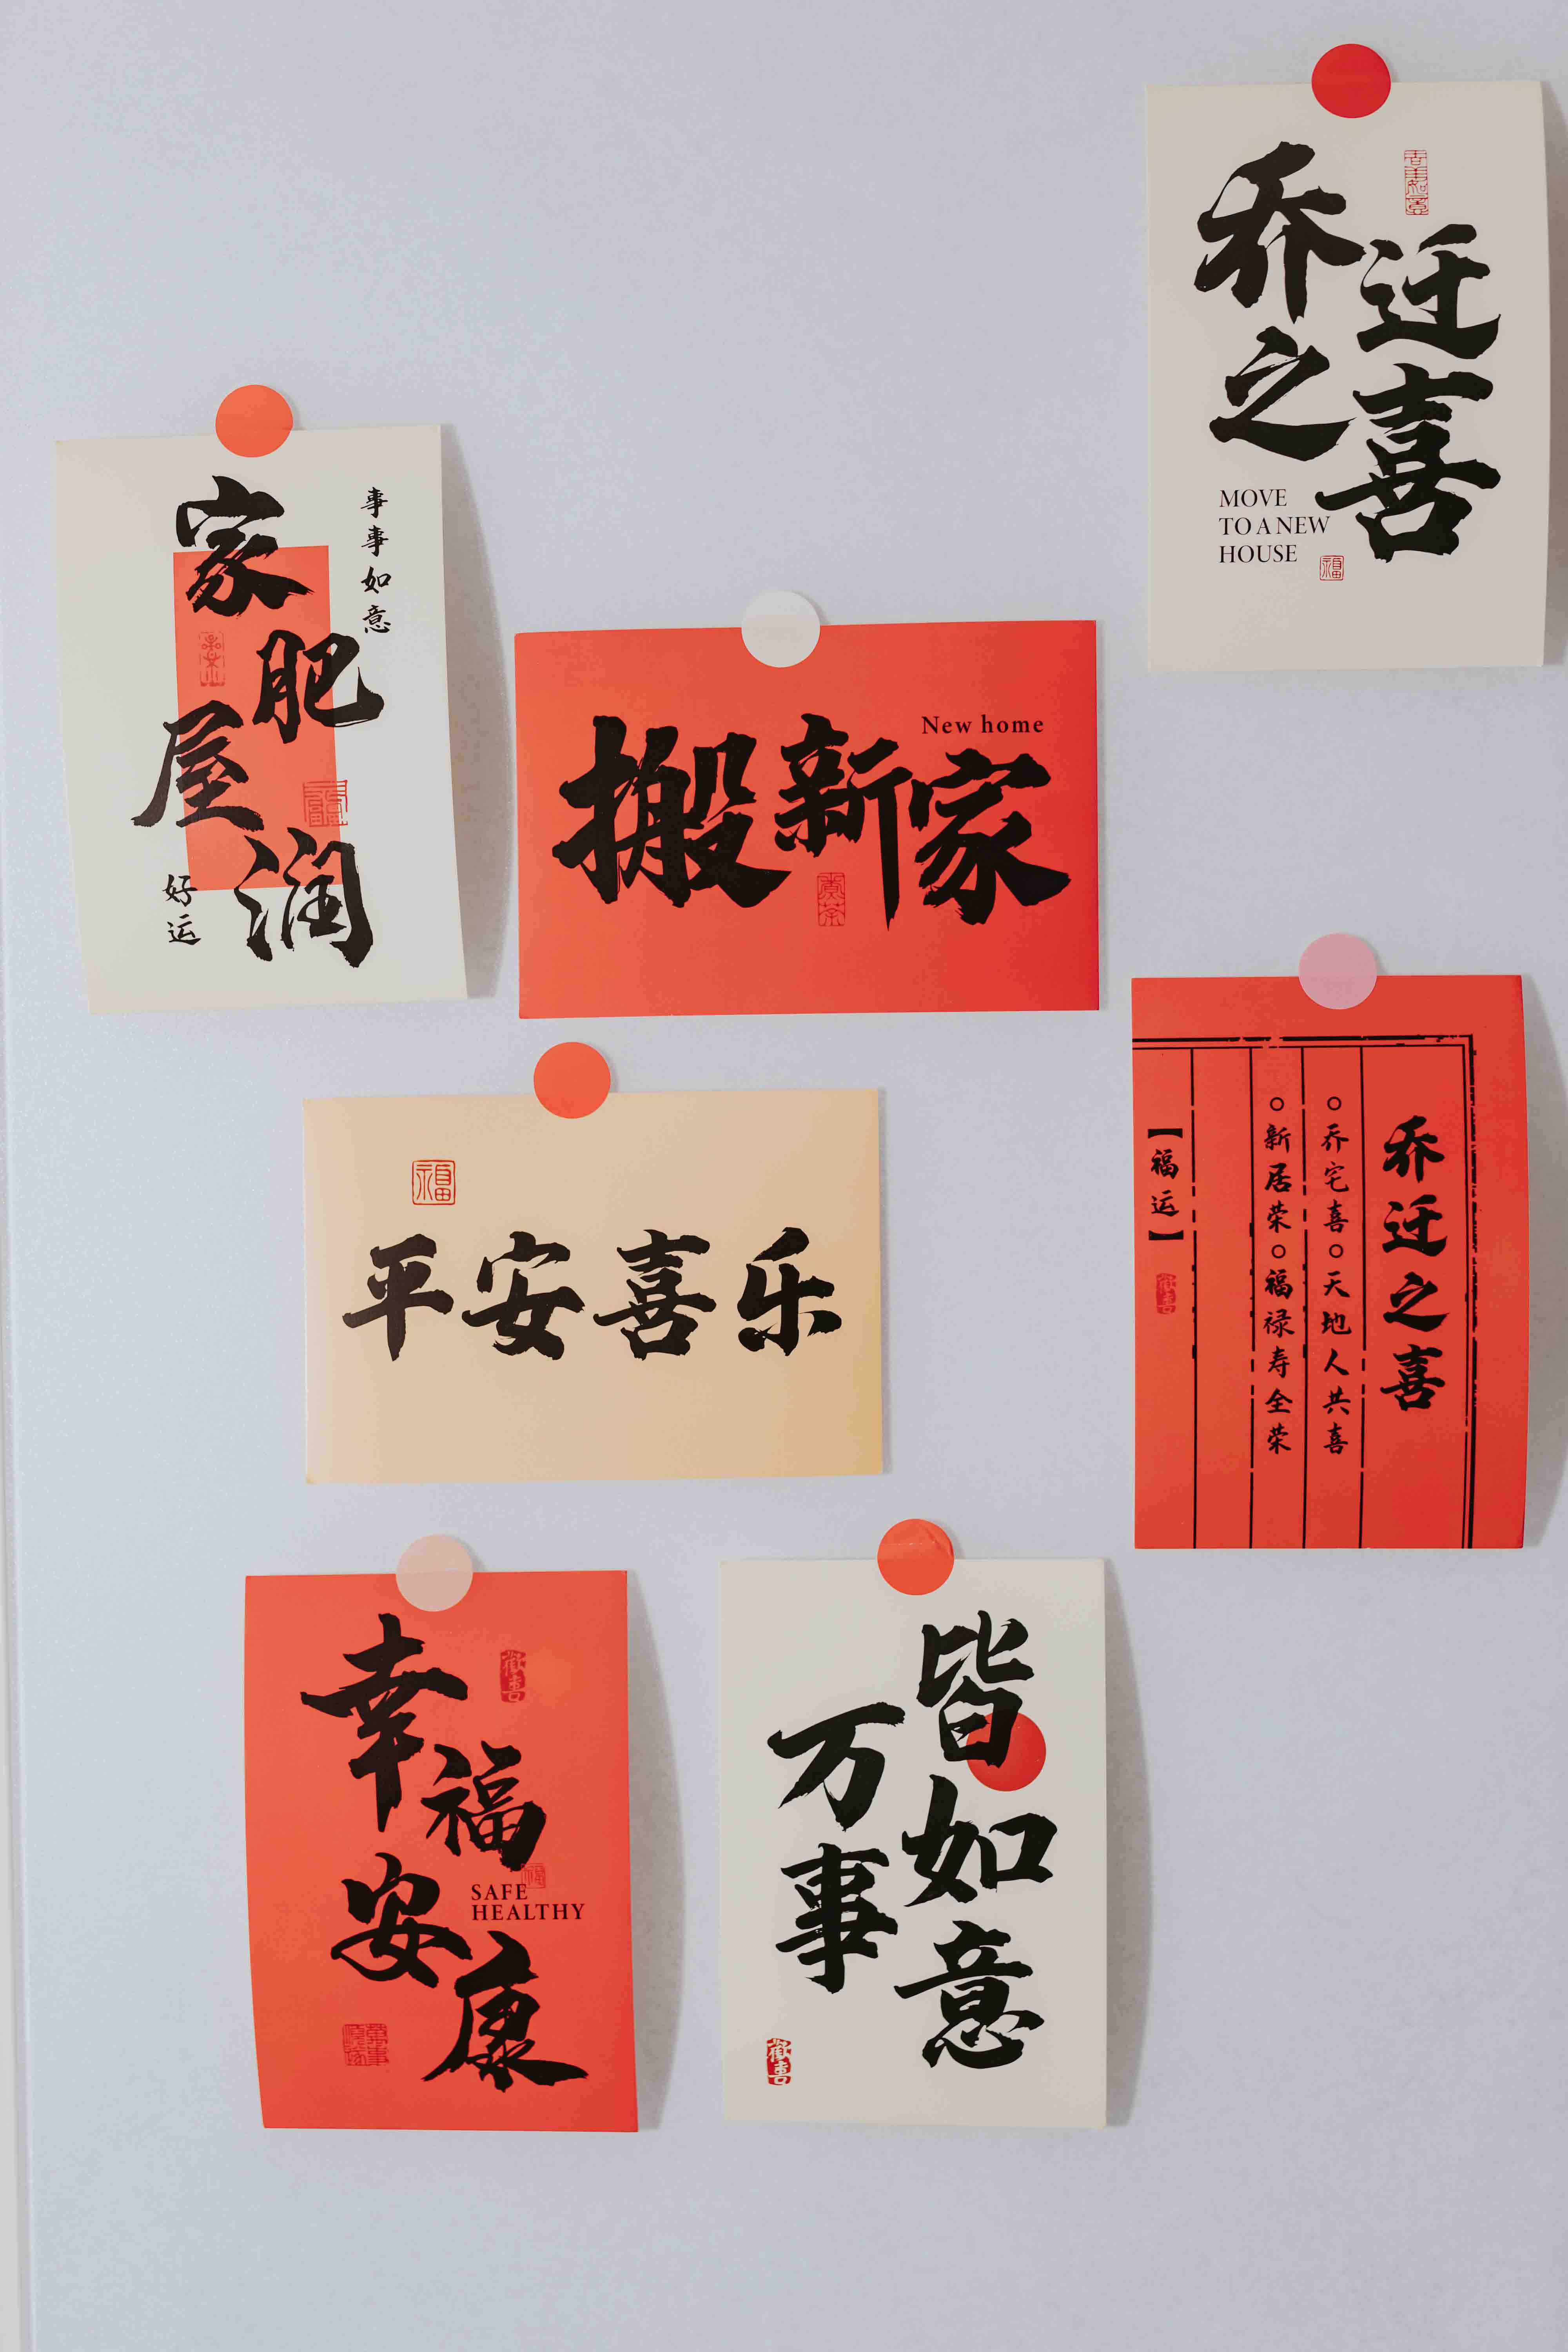 乔迁
之喜
MOVE
TO A NEW
HOUSE
福
家肥
屋润
事事如意
好运
New home
搬新家
福
平安喜乐
乔迁之喜
○乔宅喜○天地人共喜
○新居荣○福禄寿全荣
【福运】
幸福
安康
SAFE
HEALTHY
万事
皆如意